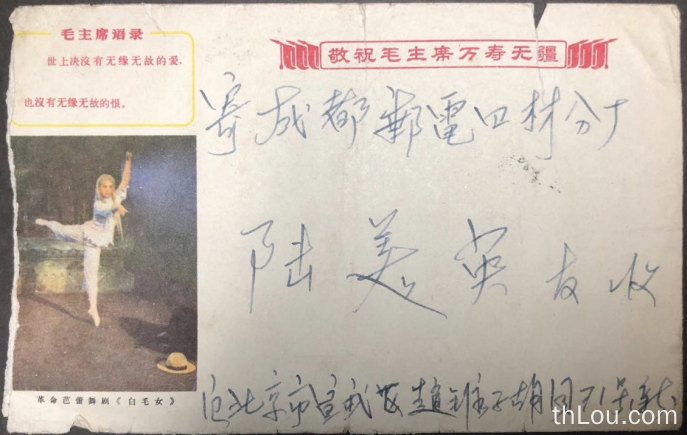 毛主席语录
世上决沒有无缘无故的爱,
也沒有无缘无故的恨。
敬祝毛主席万寿无疆
寄成都郵電四材分厂
陆美英 友收
革命芭蕾舞剧《白毛女》
北京市宣武区趙锥子胡同
thLou.com